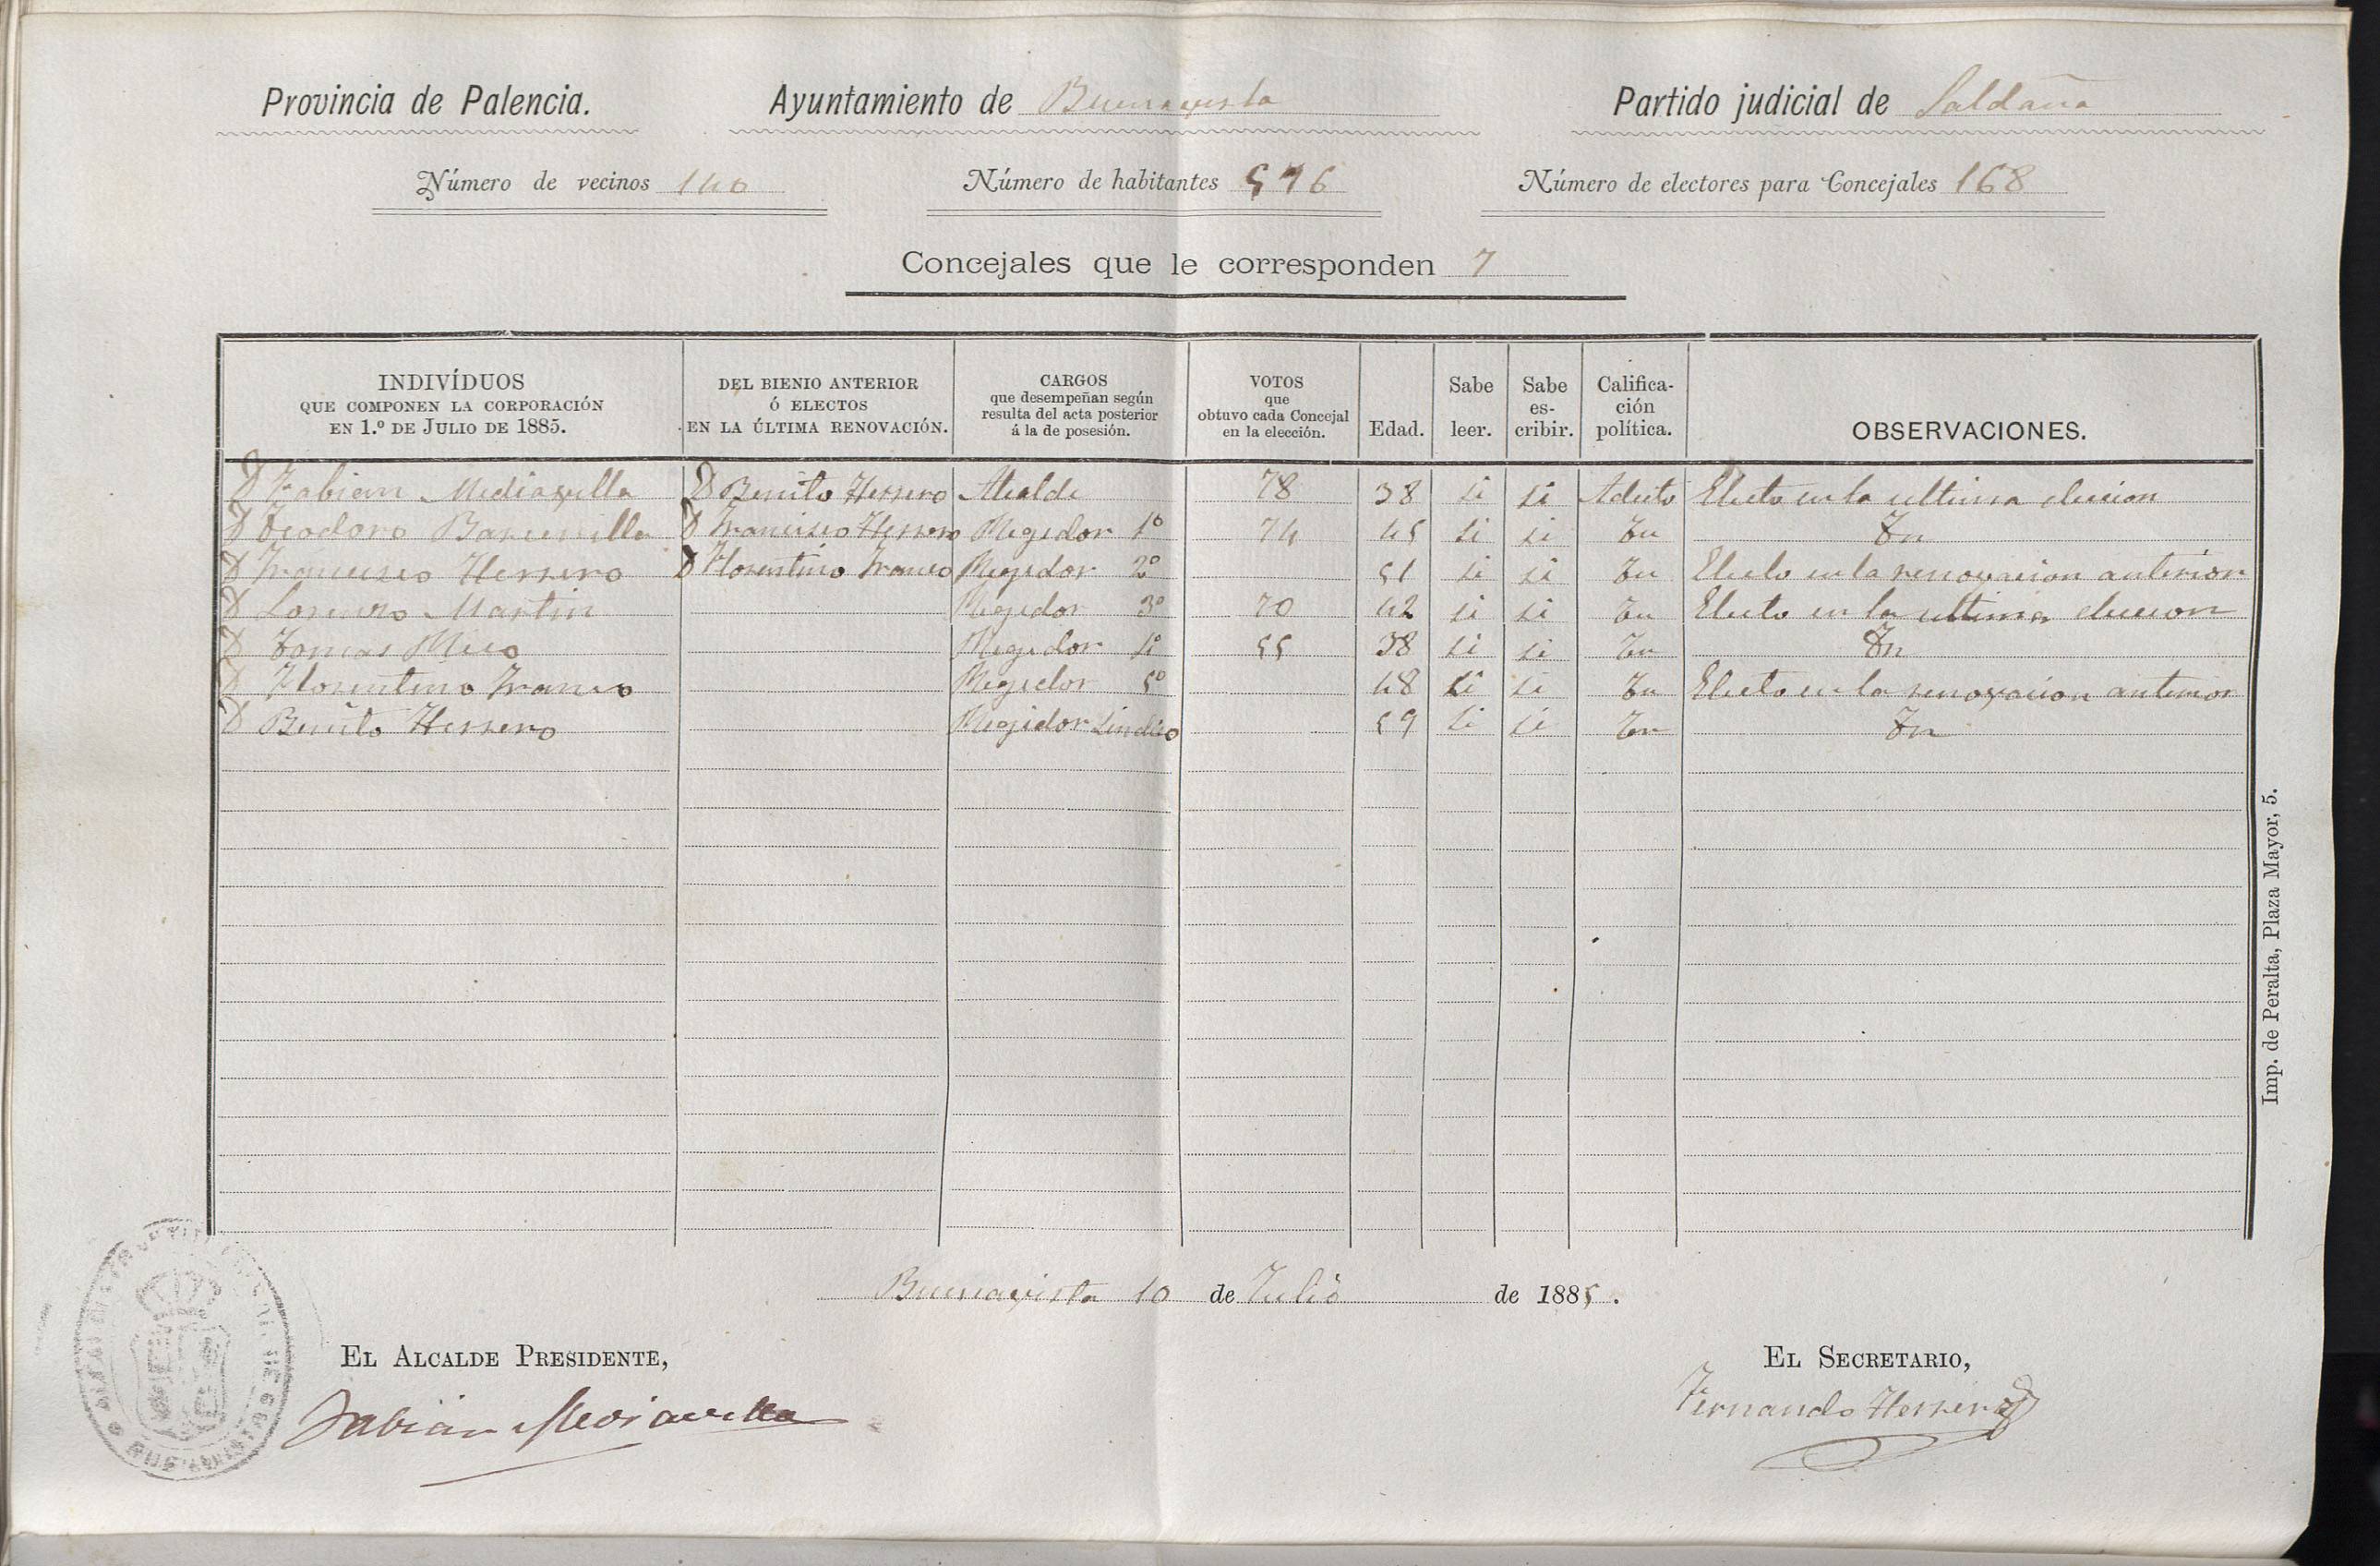 Provincia de Palencia. Ayuntamiento de Buenavista Partido judicial de Saldaña
Número de vecinos 140 Número de habitantes 576 Número de electores para Concejales 168
Concejales que le corresponden 7
INDIVÍDUOS QUE COMPONEN LA CORPORACIÓN EN 1.º DE JULIO DE 1885. DEL BIENIO ANTERIOR Ó ELECTOS EN LA ÚLTIMA RENOVACIÓN. CARGOS que desempeñan según resulta del acta posterior á la de posesión. VOTOS que obtuvo cada Concejal en la elección. Edad. Sabe leer. Sabe es- cribir. Califica- ción política. OBSERVACIONES.
D Fabian Mediavilla D Benito Herrero Alcalde 78 38 si si Adicto Electo en la ultima elecion
D Teodoro Barcenilla D Francisco Herrero Regidor 1º 74 45 si si Yn Yn
D Francisco Herrero D Florentino Franco Regidor 2º 51 si si Yn Electo en la renovacion anterior
D Lorenzo Martin Regidor 3º 70 42 si si Yn Electo en la ultima eleccion
D Tomas Mico Regidor 4º 55 38 si si Yn Yn
D Florentino Franco Regidor 5º 48 si si Yn Electo en la renovacion anterior
D Benito Herrero Regidor Sindico 59 si si Yn Yn
Imp. de Peralta, Plaza Mayor, 5.
Buenavista 10 de Julio de 1885.
EL ALCALDE PRESIDENTE, EL SECRETARIO,
Fabian Mediavilla Fernando Herrero